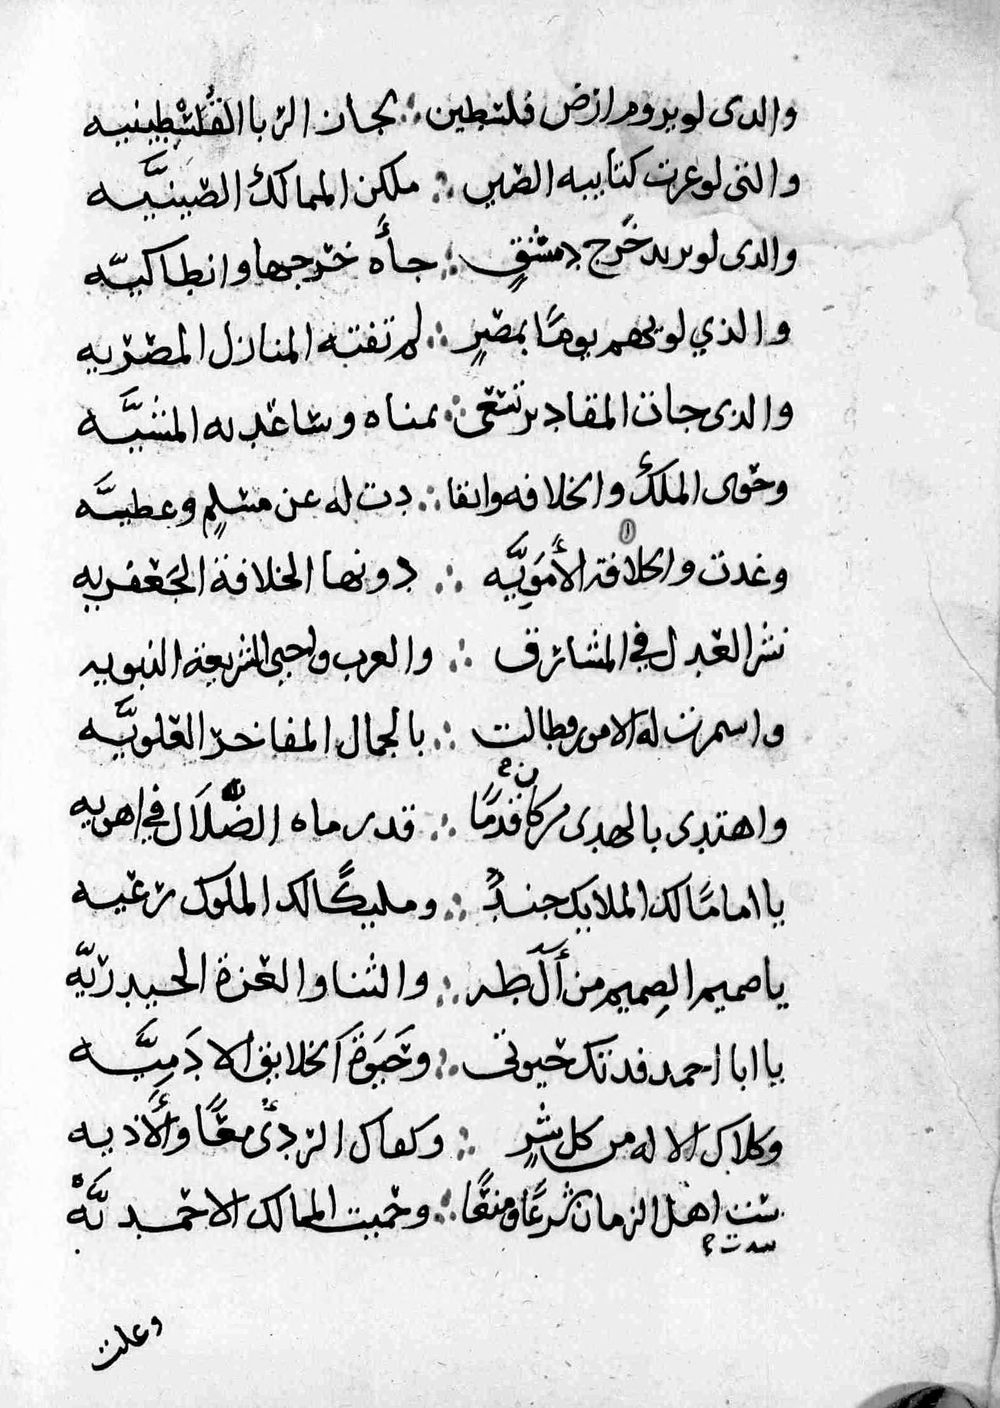 والدى لويروم ارض فلسطين ؞ لجان الربا الفلسطينيه
والتى لوعرت كتايبه الصين ؞ ملكن الممالك الصينيَّه
والدى لويريد خرج دمشقٍ ؞ جاءه خرجها وانطاكيّه
والذي لويهم يومًا بمصرٍ ؞ لم تفته المنازل المصريه
والذى جات المقادير تسعى ؞ بمناه وساعدته المشيَّه
وحوى الملك والخلافه وانقا ؞ دت له عن مسلمٍ وعطيَّه
وغدت والخلافة الأَمَوِيَّه ؞ دونها الخلافة الجعفريه
نشر العدل في المشارق ؞ والعرب واحيى الشريعة النبويه
واسمرت له الامور وطالت ؞ بالجمال المفاخر العلويَّه
واهتدى بالهدى مركا قدمًا ؞ قد رماه الضَّلَال في اهويه
ن؟
يا امامًا لك الملايك جندٌ ؞ ومليكًا لك الملوك رعيه
يا صميم الصميم من آل طه ؞ والثنا والعزة الحيدريّه
يا ابا احمد فدتك حيوتى ؞ وحَيَوة الخلايق الادَمِيَّه
وكلاك الاله من كل شرٍ ؞ وكفاك الردىْ معًا والأذيه
سُت اهل الزمان شرعًا ومنعًا ؞ وحميت الممالك الاحمديَّه
سدت؟
وعلت